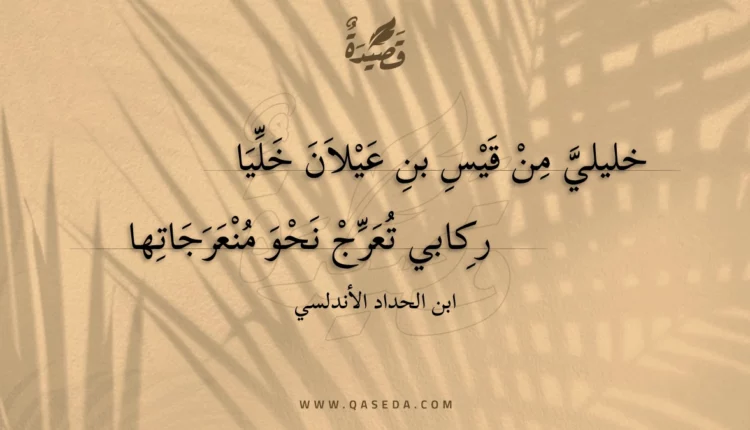 قَصِيْدَةٌ
خليليَّ مِنْ قَيْسِ بنِ عَيْلاَنَ خَلِّيَا
ركِابي تُعَرِّجْ نَحْوَ مُنْعَرَجَاتِها
ابن الحداد الأندلسي
WWW.QASEDA.COM